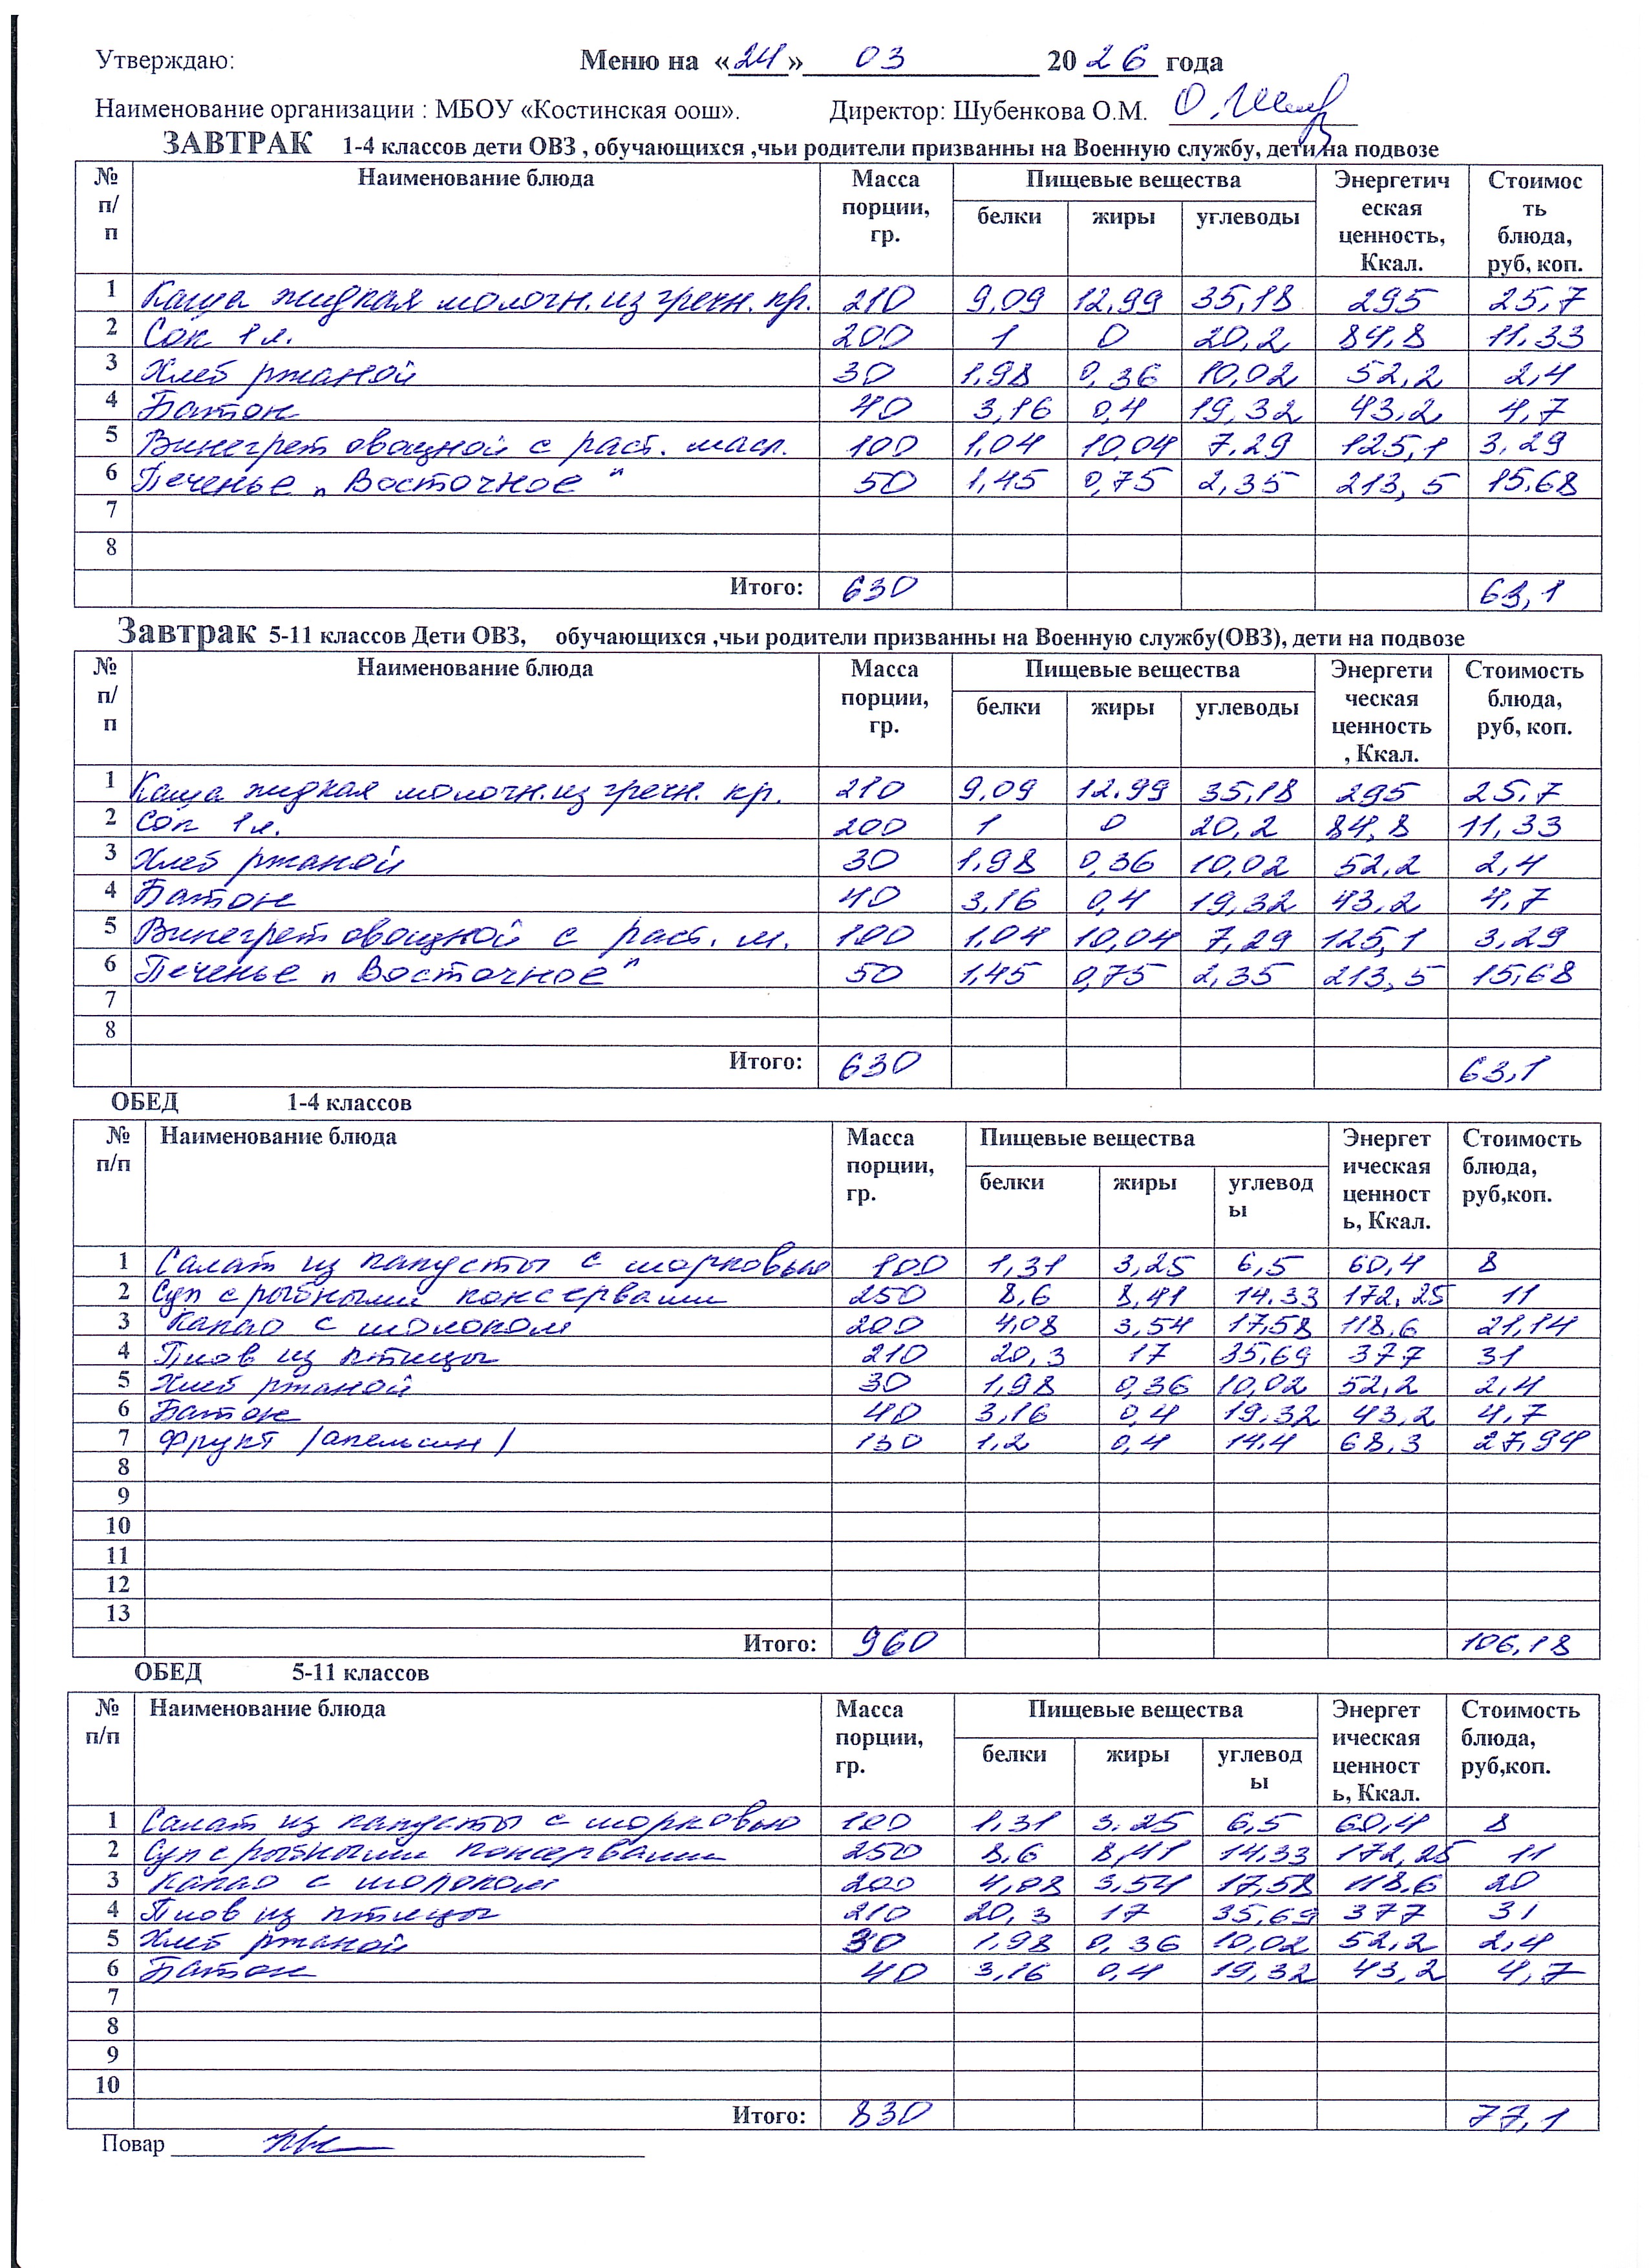 Утверждаю: Меню на «24» 03 2026 года
Наименование организации : МБОУ «Костинская оош». Директор: Шубенкова О.М.
ЗАВТРАК 1-4 классов дети ОВЗ , обучающихся ,чьи родители призванны на Военную службу, дети на подвозе
№ п/п Наименование блюда Масса порции, гр. Пищевые вещества Энергетическая ценность, Ккал. Стоимость блюда, руб, коп.
белки жиры углеводы
1 Каша жидкая молочн. из гречн. кр. 210 9,09 12,99 35,18 295 25,7
2 Сок 1 л. 200 1 0 20,2 84,8 11,33
3 Хлеб ржаной 30 1,98 0,36 10,02 52,2 2,4
4 Батон 40 3,16 0,4 19,32 43,2 4,7
5 Винегрет овощной с раст. масл. 100 1,04 10,04 7,29 125,1 3,29
6 Печенье „Восточное" 50 1,45 0,75 2,35 213,5 15,68
7
8
Итого: 630 63,1
Завтрак 5-11 классов Дети ОВЗ, обучающихся ,чьи родители призванны на Военную службу(ОВЗ), дети на подвозе
№ п/п Наименование блюда Масса порции, гр. Пищевые вещества Энергетическая ценность, Ккал. Стоимость блюда, руб, коп.
белки жиры углеводы
1 Каша жидкая молочн. из гречн. кр. 210 9,09 12,99 35,18 295 25,7
2 Сок 1 л. 200 1 0 20,2 84,8 11,33
3 Хлеб ржаной 30 1,98 0,36 10,02 52,2 2,4
4 Батон 40 3,16 0,4 19,32 43,2 4,7
5 Винегрет овощной с раст. м. 100 1,04 10,04 7,29 125,1 3,29
6 Печенье „Восточное" 50 1,45 0,75 2,35 213,5 15,68
7
8
Итого: 630 63,1
ОБЕД 1-4 классов
№ п/п Наименование блюда Масса порции, гр. Пищевые вещества Энергетическая ценность, Ккал. Стоимость блюда, руб,коп.
белки жиры углеводы
1 Салат из капусты с морковью 100 1,31 3,25 6,5 60,4 8
2 Суп с рыбными консервами 250 8,6 8,41 14,33 172,25 11
3 Какао с молоком 200 4,08 3,54 17,58 118,6 21,14
4 Плов из птицы 210 20,3 17 35,69 377 31
5 Хлеб ржаной 30 1,98 0,36 10,02 52,2 2,4
6 Батон 40 3,16 0,4 19,32 43,2 4,7
7 Фрукт /апельсин/ 130 1,2 0,4 14,4 68,3 27,94
8
9
10
11
12
13
Итого: 960 106,18
ОБЕД 5-11 классов
№ п/п Наименование блюда Масса порции, гр. Пищевые вещества Энергетическая ценность, Ккал. Стоимость блюда, руб,коп.
белки жиры углеводы
1 Салат из капусты с морковью 100 1,31 3,25 6,5 60,4 8
2 Суп с рыбными консервами 250 8,6 8,41 14,33 172,25 11
3 Какао с молоком 200 4,08 3,54 17,58 118,6 20
4 Плов из птицы 210 20,3 17 35,69 377 31
5 Хлеб ржаной 30 1,98 0,36 10,02 52,2 2,4
6 Батон 40 3,16 0,4 19,32 43,2 4,7
7
8
9
10
Итого: 830 77,1
Повар